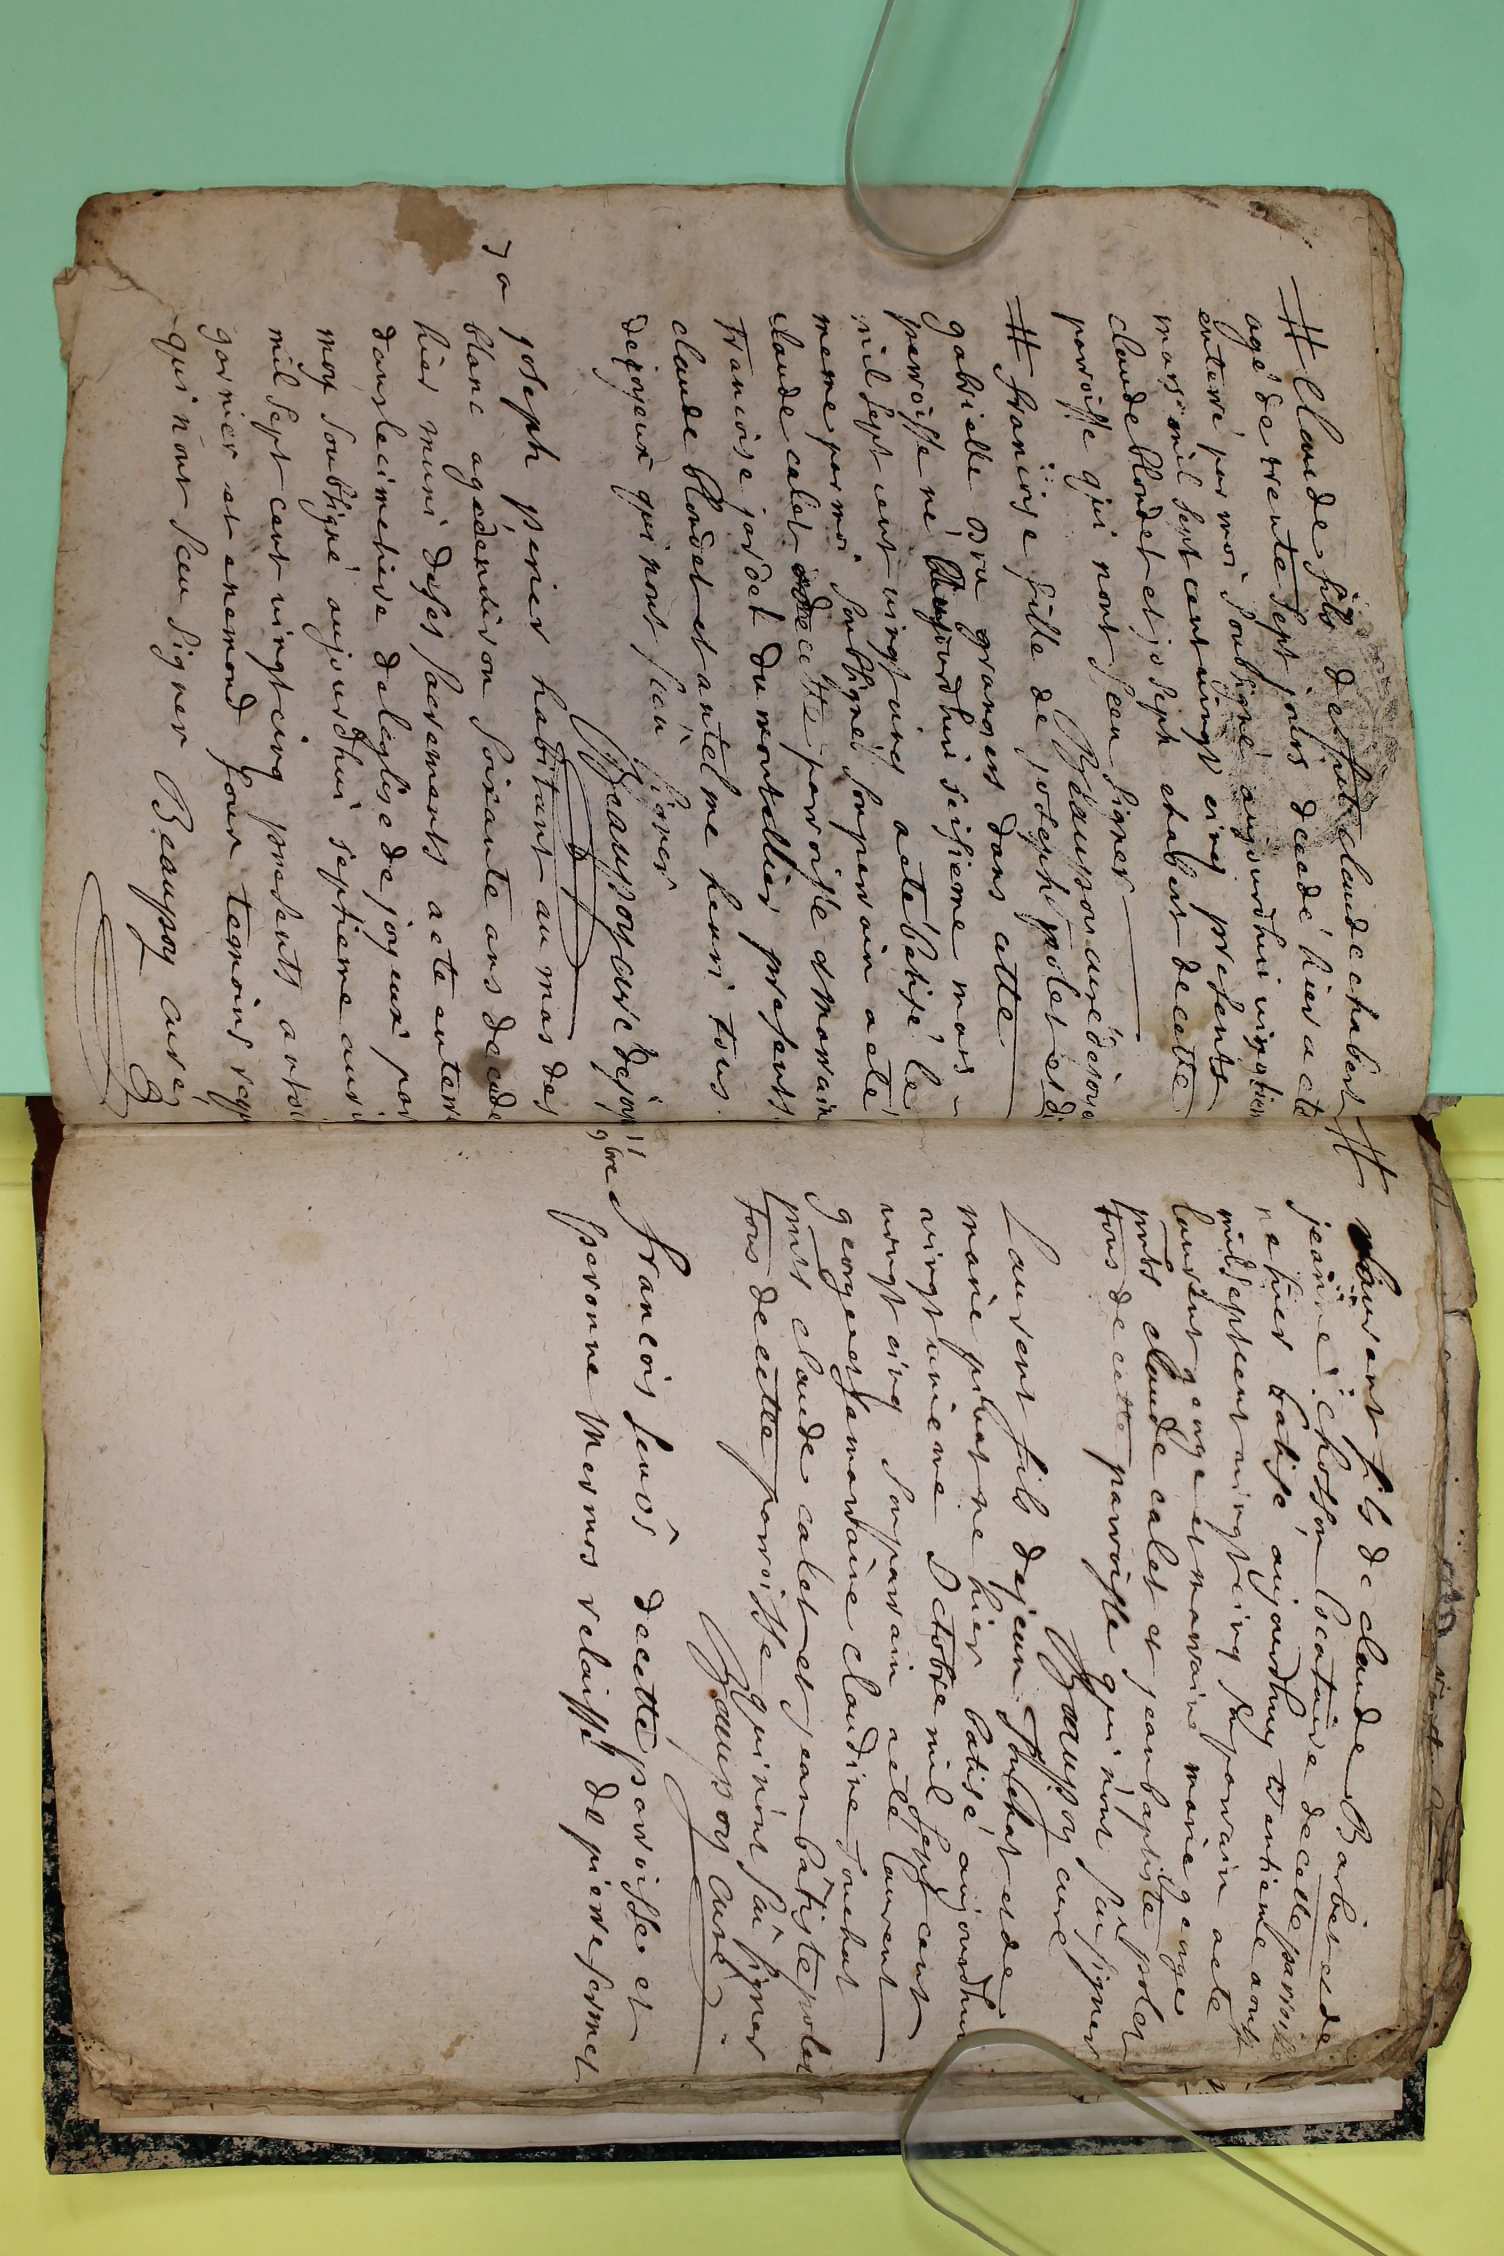 # Claude fils de fut claude chabert
agé de trente sept jours decedé hier a ete
enterré par moi soubsigné aujourdhui
mars mil sept cent vingt cinq presents
claude blondet et joseph chabert de cette
paroisse qui nont sceu signer
Beaupoy curé de
# francoise fille de joseph polet et de
gabrielle dru grangers dans cette
parroisse né aujourdhui sesieme mars
mil sept cent vingt cinq a ete batisé le
meme par moi soubsigné son parain a eté
claude calet de cette parroisse et maraine
francoise jardet du montellier presents
claude blondet et antelme henri tous
de joyeux qui nont sceu signer
Beaupoy curé de joy
joseph perier habitant au mas des
blanc agé denviron soixante ans decede
hier muni de ses sacrements a ete enterré
dans le cimetiere de leglise de joyeux par
moy soubsigné aujourdhui septieme avri
mil sept cent vingt cinq presents antoi
garnier et enemond four temoins requ
qui nont sceu signer Beaupoy curé
# laurent fils de claude Barbet et de
jeanne chosson locataire de cette parroisse
ne hier batisé aujourdhuy trentieme aoust
mil sept cent vingt cinq son parain a ete
laurent genge et maraine marie genge
pnts claude calet et jean baptiste polet
tous de cette parroisse qui nont sceu signer
Beaupoy curé
Laurent fils de jean Touchat et de
marie privat ne hier batisé aujourdhui
vingt unieme Octobre mil sept cent
vingt cinq son parain a ete laurent
george et sa maraine claudine Touchat
pnts claude calet et jean batiste polet
tous de cette parroisse qui nont sceu signer
Beaupoy curé
9bre
francois de cette parroisse et
peronne Mermos relaissé de pierre fermet